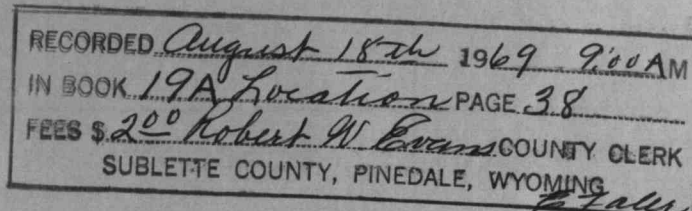 RECORDED August 18th 1969 9:00 AM
IN BOOK 19A Location PAGE 38
FEES $ 2.00 Robert W Evans COUNTY CLERK
SUBLETTE COUNTY, PINEDALE, WYOMING